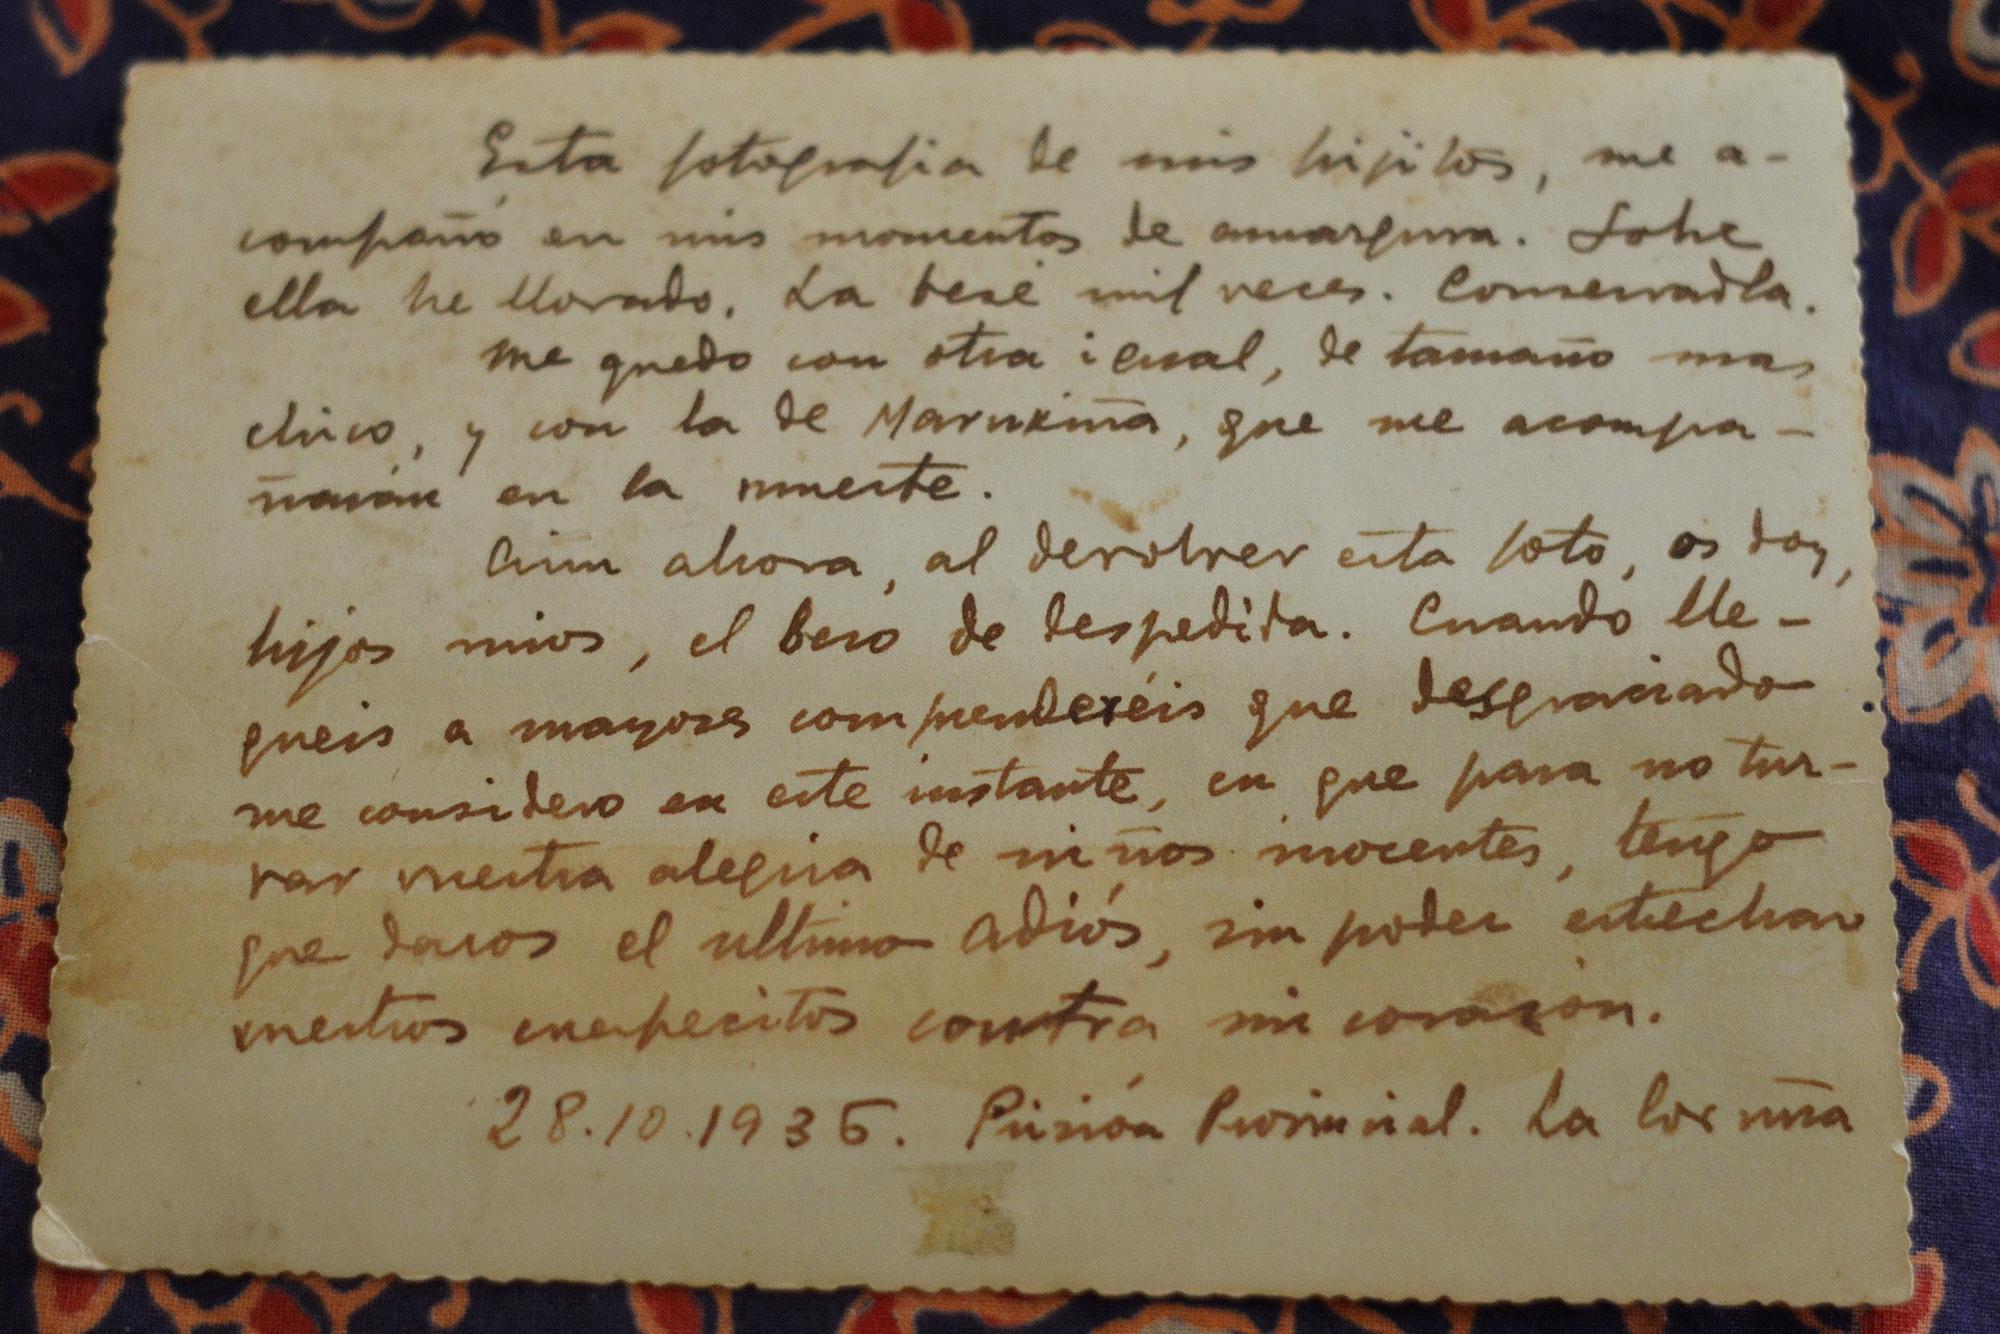 Esta fotografia de mis hijitos, me a-
compañó en mis momentos de amargura. Sobre
ella he llorado. La besé mil veces. Conservadla.
Me quedo con otra igual, de tamaño mas
chico, y con la de Maruxiña, que me acompa-
ñarán en la muerte.
Aún ahora, al devolver esta foto, os doy,
hijos mios, el beso de despedida. Cuando lle-
gueis a mayores comprenderéis que desgraciado
me considero en este instante, en que para no tur-
var vuestra alegria de niños inocentes, tengo
que daros el ultimo adiós, sin poder estrechar
vuestros cuerpecitos contra mi corazon.
28.10.1936. Prisión Provincial. La Coruña